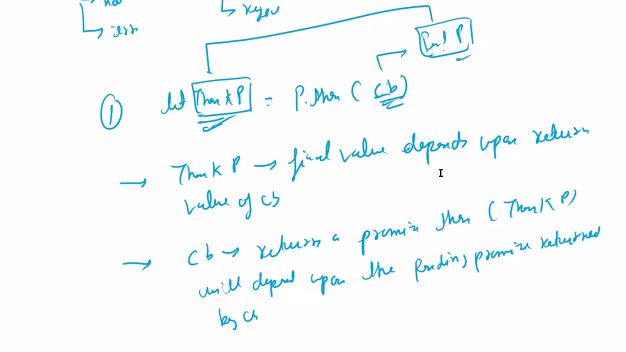 ① let ThenKP = P.then ( cb )
→ ThenKP → final value depends upon return
value of cb
→ cb → returns a promise then ( ThenKP )
will depend upon the pending promise returned
by cb